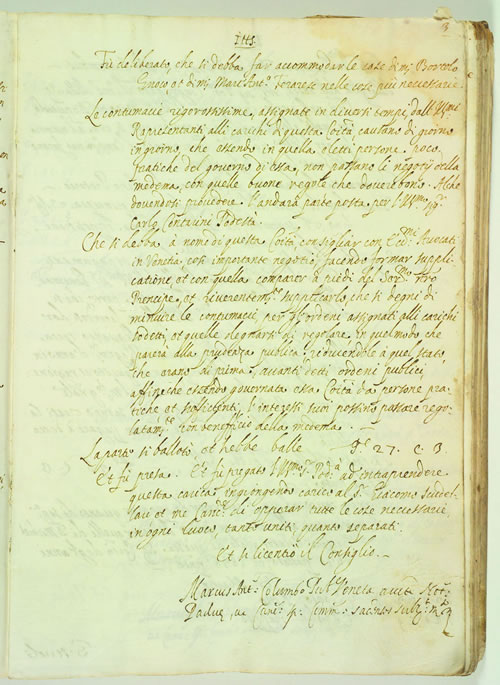 IHS
Fù deliberato, che si debba far accommodar le case di m.r Bortolo
et di m.r Marc'Ant.o nelle cose più necessarie
Le contumacie rigorosissime, assignate in diversi tempi, dall'Ill.mi
Rapresentanti alli carichi di questa Città causano di giorno
in giorno, che essendo in quella eletti persone poco
pratiche del governo di essa, non passano li negotij della
medema, con quelle buone regole che doverebbono. Al che
dovendosi provedere. L'andarà parte posta per l'Ill.mo Sig.r
Carlo Contarini Podestà.
Che si debba à nome di questa Città, consigliar con Ecc.mi Avocati
in Venetia, così importante negotio, facendo formar suppli-
catione, et con quella comparer à piedi del Ser.mo nro
Principe, et riverentem.te supplicarlo, che si degni di
minuire le contumacie, per gl'ordeni assignati alli carichi
sodetti, et quelle degnarsi di regolare, in quel modo che
parerà alla prudenza publica, riducendole à quel stato,
che erano di prima, avanti detti ordeni publici,
affinche essendo governata essa Città da persone pra-
tiche et sofficienti, l'interessi suoi possino passare rego-
latam.te con beneficio della medema.
La parte si ballotò, et hebbe balle P. 27. C. 3.
Et fù presa. Et fù pregato l'Ill.mo S.r Pod.à ad intraprendere
questa carica, ingiongendo carico al S.r Giacomo
et me Canc.r di opperar tutte le cose necessarie,
in ogni luoco, tanto uniti, quanto separati.
Et si licentiò il Consiglio.
Marcus Ant.s Columbo Not.s
Paduæ, ac Canc.s